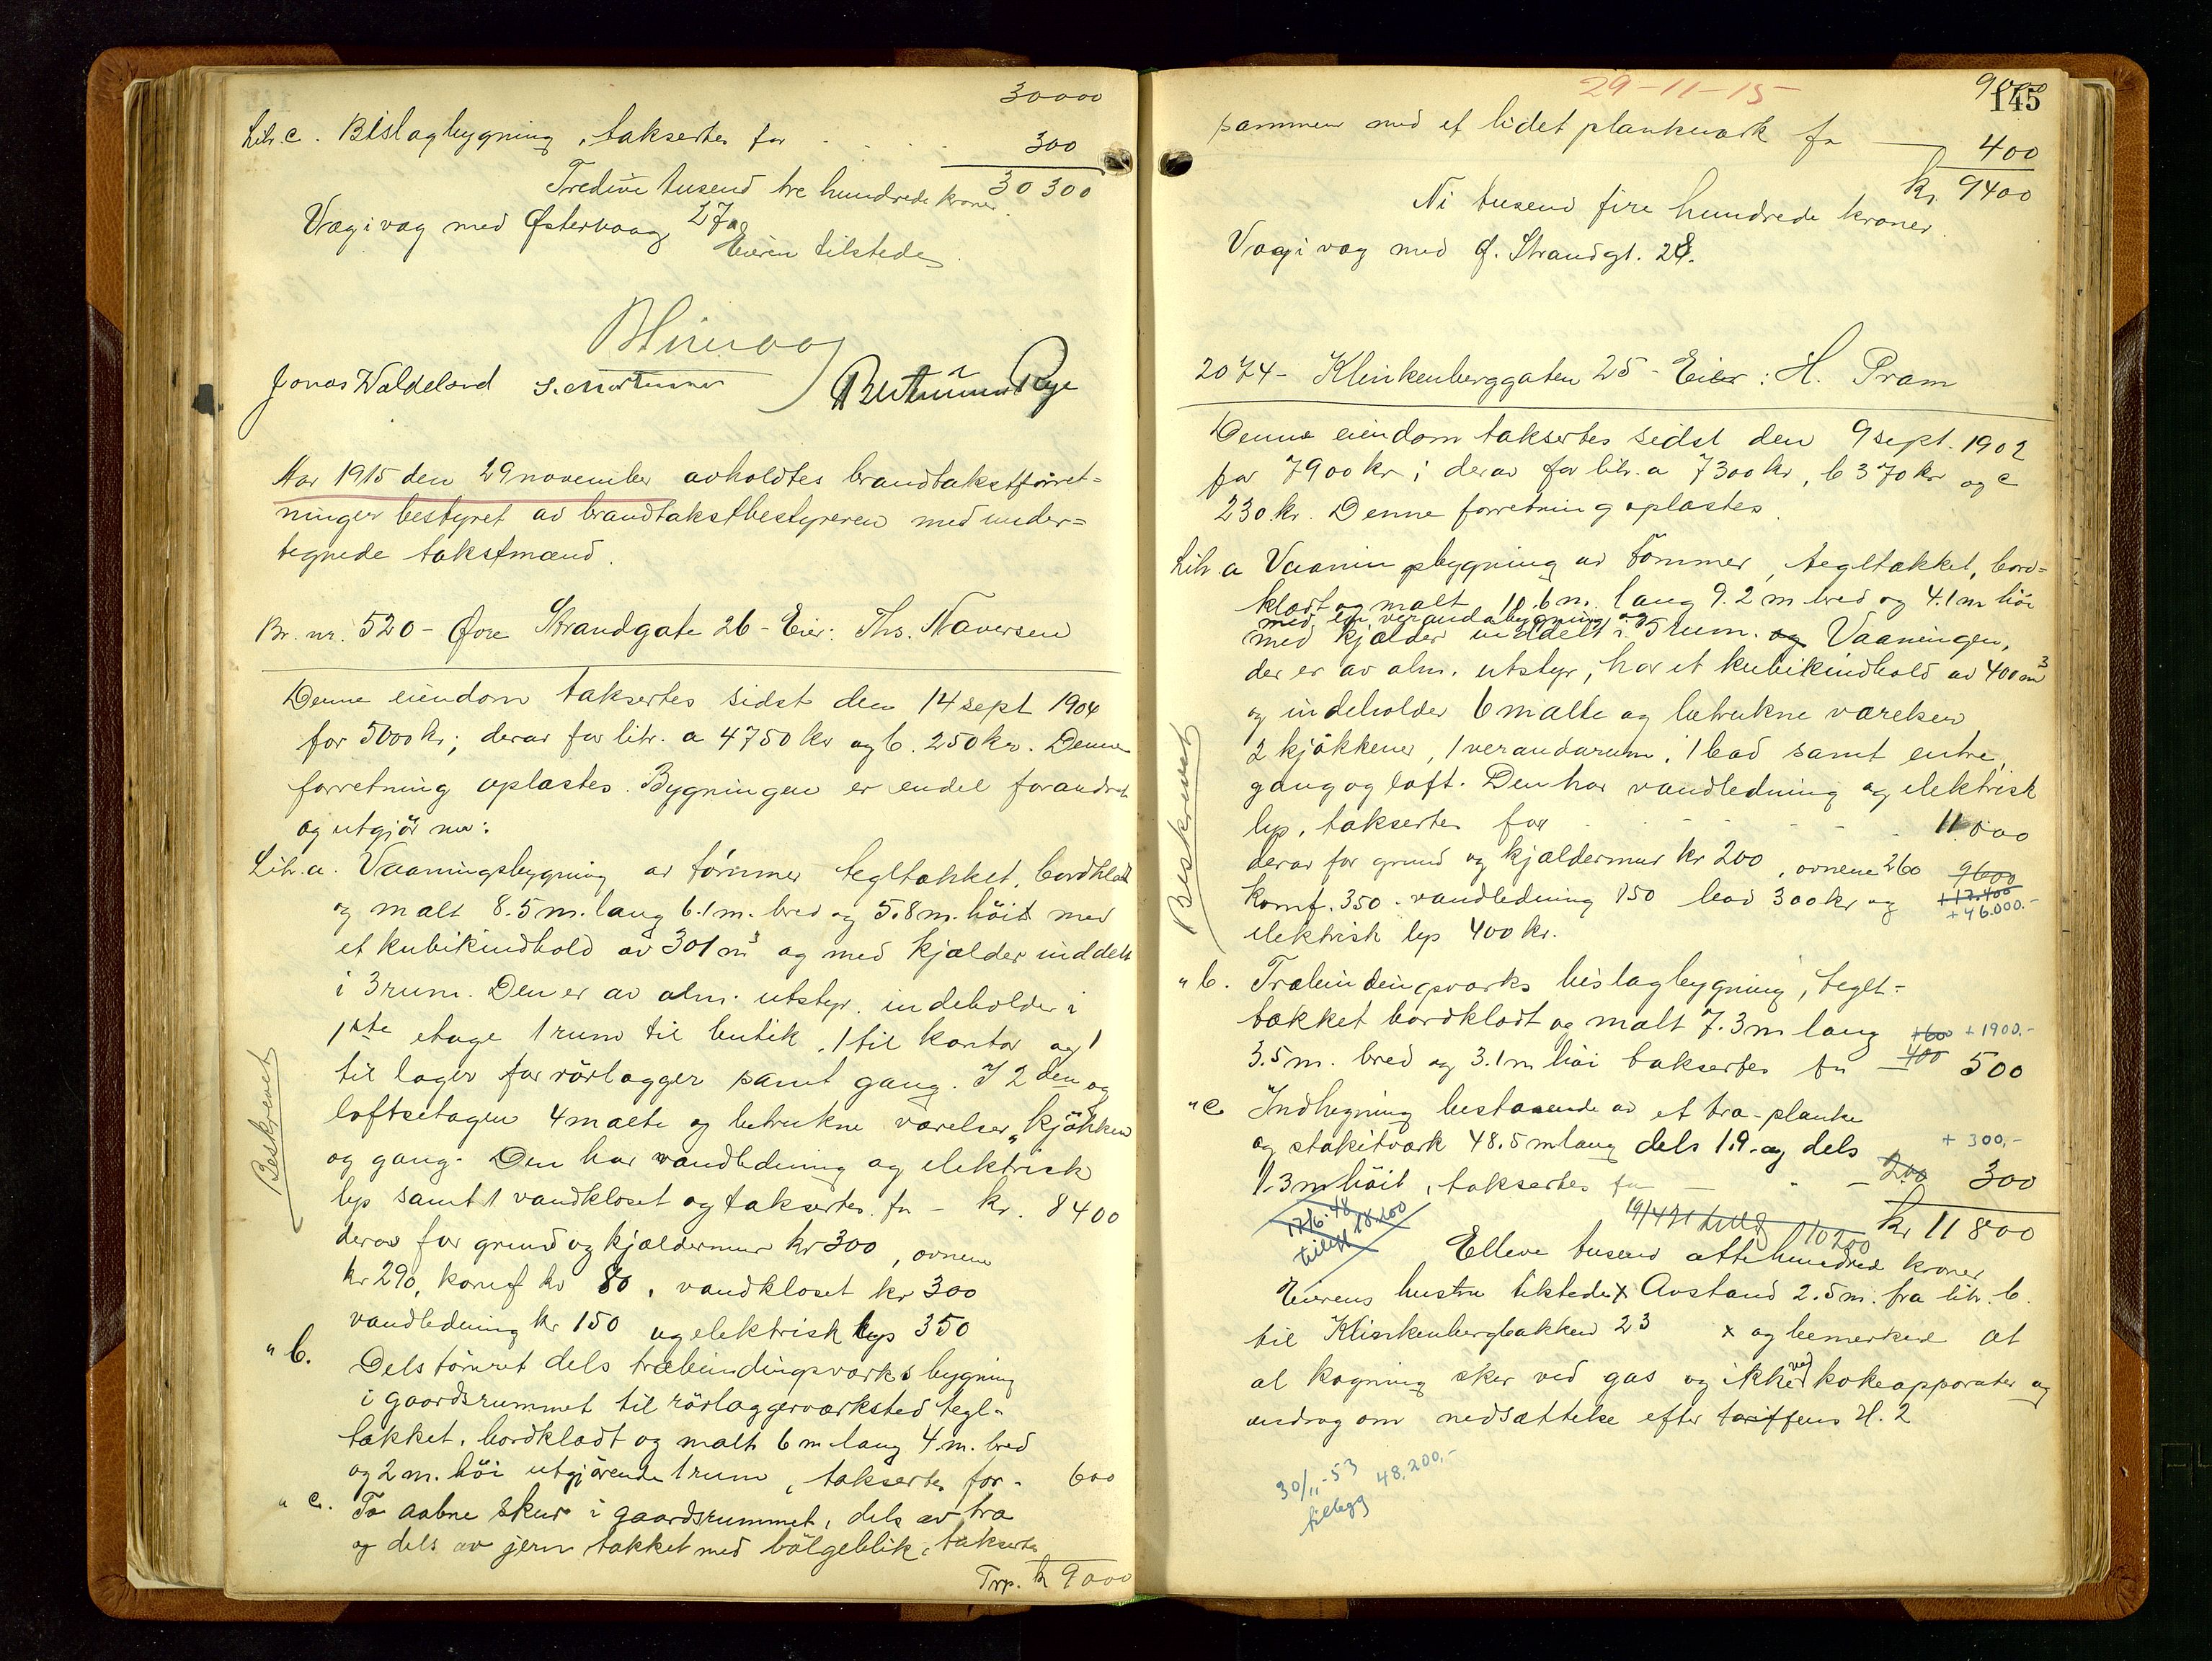 30000
Litr. c. Bislagbygning, takseres for . . . . 300
Tredive tusend tre hundrede kroner 30300
Væg i væg med Østervaag 27
Eieren tilstede
Jonas Waldeland S. Mortensen
Aar 1915 den 29 november avholdtes brandtakstforret=
ninger bestyret av brandtakstbestyreren med under=
tegnede takstmænd.
Br. nr. 520 - Øvre Strandgate 26 - Eier: Ths. Haversen
Denne eiendom taksertes sidst den 14 sept 1904
for 5000 kr; derav for litr. a 4750 kr og b. 250 kr. Denne
forretning oplæstes. Bygningen er endel forandret
og utgjør nu:
Litr. a. Vaaningsbygning av tømmer tegltækket, bordklædt
og malt 8.5 m. lang 6.1 m. bred og 5.8 m. høit med
et kubikindhold av 301 m³ og med kjælder inddelt
i 3 rum. Den er av alm. utstyr, indeholder i
1ste etage 1 rum til butik, 1 til kontor og 1
til lager for rørlægger samt gang. I 2den og
loftsetagen 4 malte og betrukne værelser, kjøkken
og gang. Den har vandledning og elektrisk
lys samt 1 vandkloset og takseres for - kr. 8400
derav for grund og kjældermur kr 300, ovnene
kr 290, komf kr 80, vandkloset kr 300
vandledning kr 150 og elektrisk lys 350
Beskrevet
" b. Dels tømret dels træbindingsværks bygning
i gaardsrummet til rørlæggerværksted tegl-
tækket, bordklædt og malt 6 m lang 4 m. bred
og 2 m. høi utgjørende 1 rum, takseres for - 600
" c. To aabne skur i gaardsrummet, dels av træ
og dels av jern tækket med bølgeblik, takseres
Trp. kr 9000
29-11-15
9000
145
sammen med et lidet plankeværk for — 400
kr 9400
Ni tusend fire hundrede kroner.
Væg i væg med Ø. Strandgt. 28.
2074 - Klinkenberggaten 25 - Eier: H. Pram
Denne eiendom taksertes sidst den 9 sept. 1902
for 7900 kr; derav for litr. a 7300 kr, b 370 kr og c
230 kr. Denne forretning oplæstes.
Litr. a Vaaningsbygning av tømmer, tegltækket, bord=
klædt og malt 10.6 m. lang 9.2 m bred og 4.1 m høi
med en verandabygning og
med kjælder inddelt i 5 rum. og Vaaningen,
der er av alm. utstyr, har et kubikindhold av 400 m³
og indeholder 6 malte og betrukne værelser
2 kjøkkener, 1 verandarum, 1 bad samt entre,
gang og loft. Den har vandledning og elektrisk
lys, takseres for - - - - 11000
derav for grund og kjældermur kr 200, ovnene 260 9600
komf. 350 - vandledning 150 bad 300 kr og +17.400
+46.000.-
elektrisk lys 400 kr.
Beskrevet
" b. Træbindingsværks bislagbygning, teglt=
tækket bordklædt og malt 7.3 m lang +60 +1900.-
3.5 m. bred og 3.1 m høi takseres for — 400 500
" c. Indhegning bestaaende av et træ-planke
og stakitværk 48.5 m lang dels 1.9 og dels + 300,-
1.3 m høit, takseres for — 200 300
17/6.48
tillegg 18.200
10200 kr 11800
Elleve tusend ottehundred kroner
Eierens hustru tilstede x Avstand 2.5 m. fra litr. b.
til Klinkenbergbakken 23 x og bemerket at
al kogning sker ved gas og ikke ved kokeapparater og
androg om nedsættelse efter tariffens H. 2
30/11-53
tillegg 48.200,-